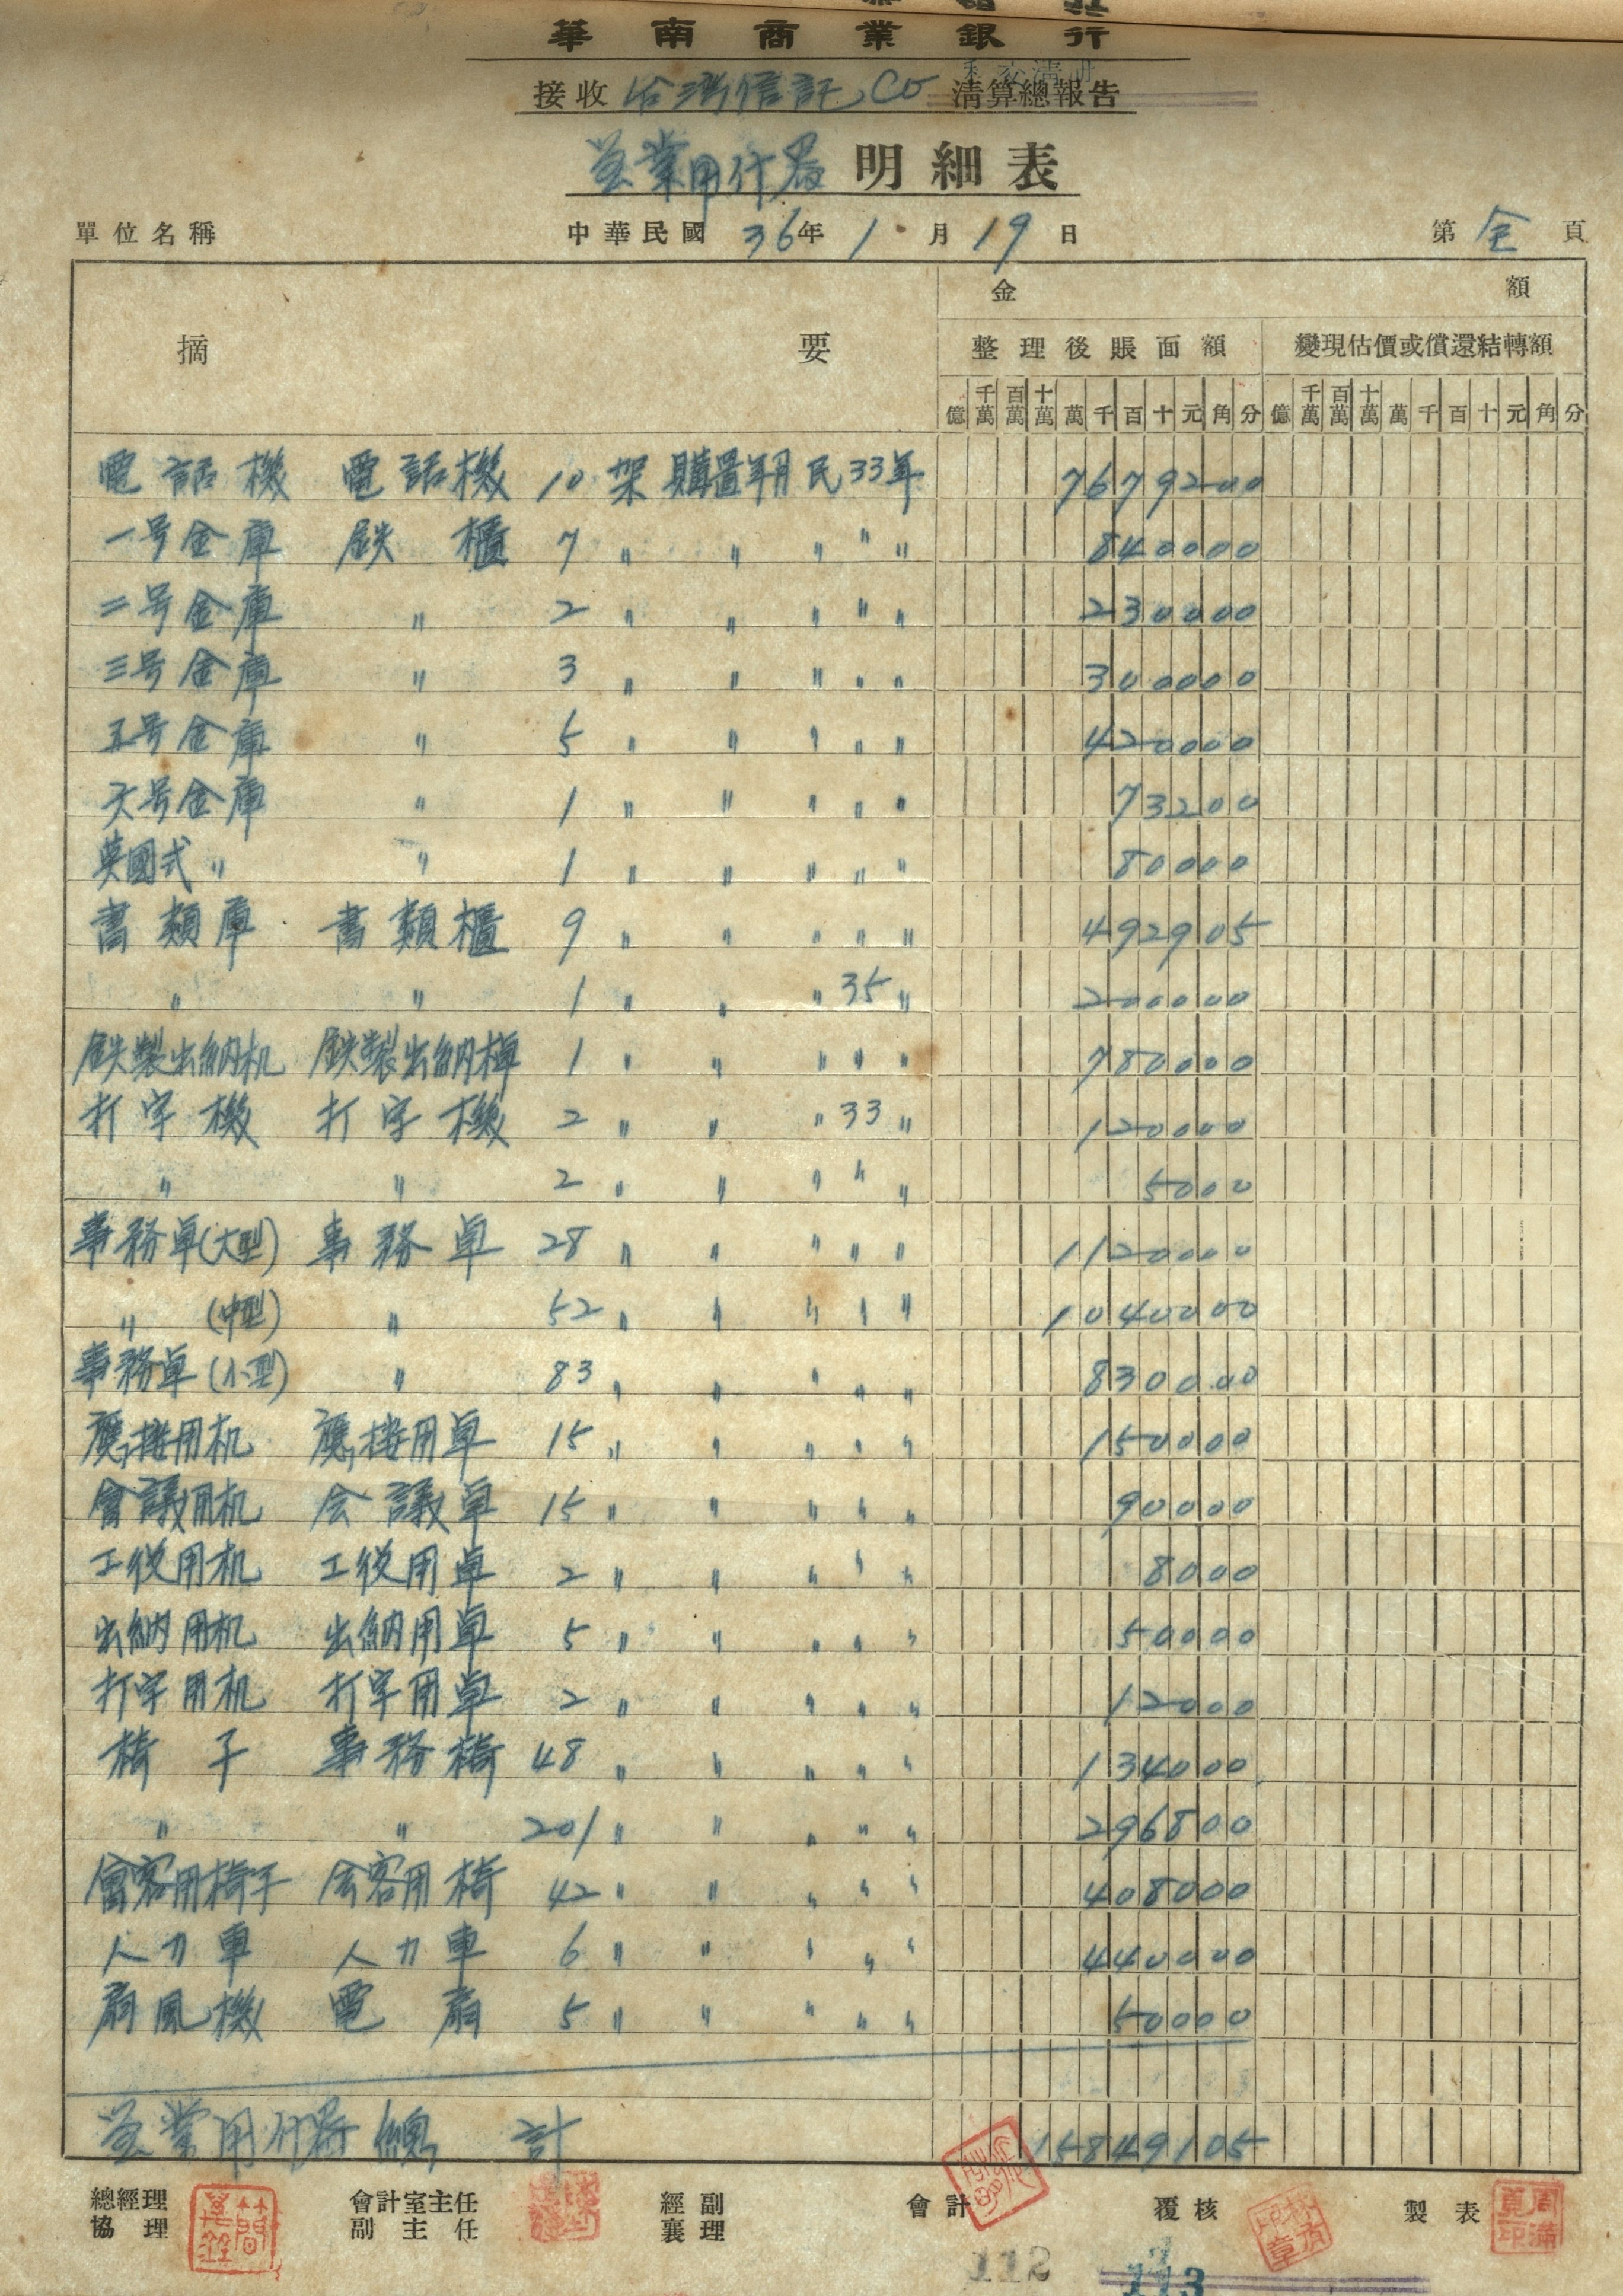 華南商業銀行
接收台湾信託Co清算總報告
営業用什器明細表
單位名稱 中華民國36年1月19日 第全頁
摘要 金額
整理後賬面額 變現估價或償還結轉額
億 千萬 百萬 十萬 萬 千 百 十 元 角 分 億 千萬 百萬 十萬 萬 千 百 十 元 角 分
電話機 電話機 10 架 購置年月 民33年 7679200
一号金庫 鉄櫃 7 〃 〃 〃 〃 〃 840000
二号金庫 〃 2 〃 〃 〃 〃 〃 230000
三号金庫 〃 3 〃 〃 〃 〃 〃 300000
五号金庫 〃 5 〃 〃 〃 〃 〃 420000
六号金庫 〃 1 〃 〃 〃 〃 〃 73200
英國式〃 〃 1 〃 〃 〃 〃 〃 80000
書類庫 書類櫃 9 〃 〃 〃 〃 〃 492905
〃 〃 1 〃 〃 〃 35 〃 200000
鉄製出納机 鉄製出納棹 1 〃 〃 〃 〃 〃 780000
打字機 打字機 2 〃 〃 〃 33 〃 120000
〃 〃 2 〃 〃 〃 〃 〃 5000
事務卓(大型) 事務卓 28 〃 〃 〃 〃 〃 1120000
〃 (中型) 〃 52 〃 〃 〃 〃 〃 1040000
事務卓(小型) 〃 83 〃 〃 〃 〃 〃 830000
應接用机 應接用卓 15 〃 〃 〃 〃 〃 150000
會議用机 会議卓 15 〃 〃 〃 〃 〃 90000
工役用机 工役用卓 2 〃 〃 〃 〃 〃 8000
出納用机 出納用卓 5 〃 〃 〃 〃 〃 50000
打字用机 打字用卓 2 〃 〃 〃 〃 〃 12000
椅子 事務椅 48 〃 〃 〃 〃 〃 134000
〃 〃 201 〃 〃 〃 〃 〃 296800
會客用椅子 会客用椅 42 〃 〃 〃 〃 〃 408000
人力車 人力車 6 〃 〃 〃 〃 〃 440000
扇風機 電扇 5 〃 〃 〃 〃 〃 50000
営業用什器總計 15849105
總經理 會計室主任 經副 會計 覆核 製表
協理 副主任 襄理
112 113